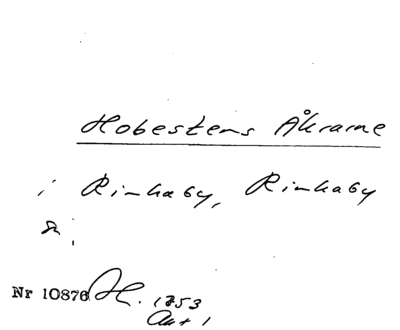 Hobestens Åkrarne
i Rinkaby, Rinkaby
sn;
Nr 10876 H. 1853
Akt 1